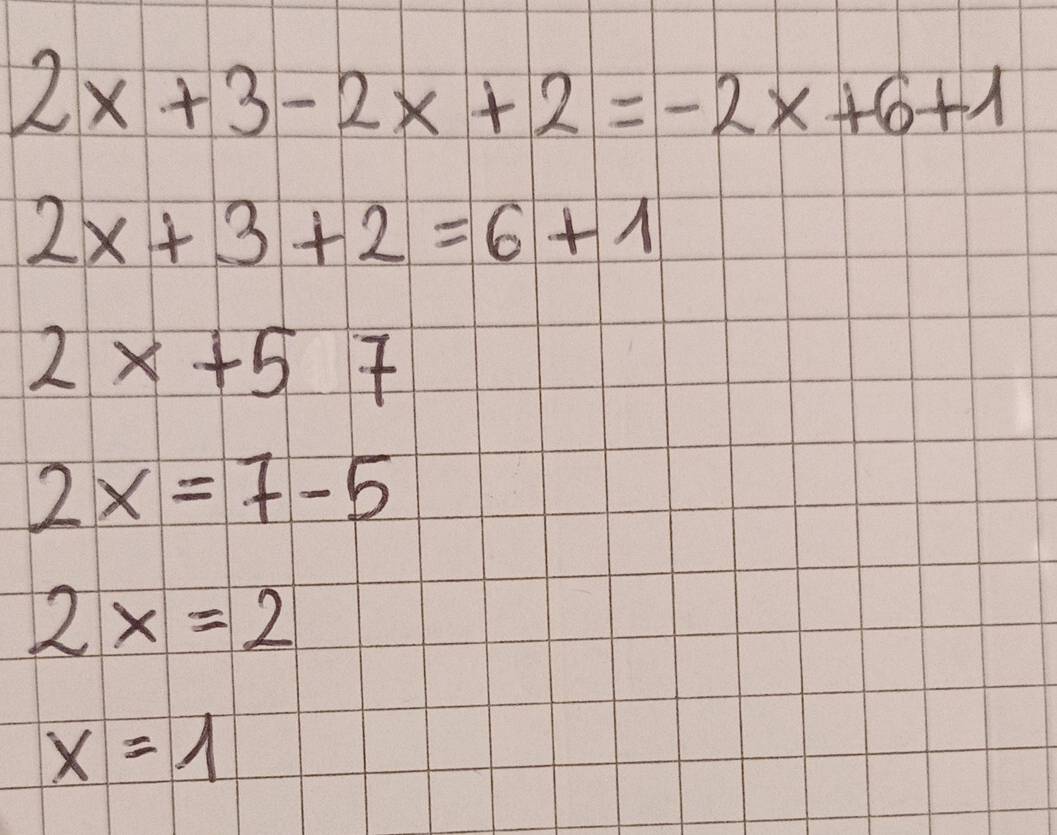 2x+3-2x+2=-2x+6+1
2x+3+2=6+1
2x+5 7
2x=7-5
2x=2
x=1